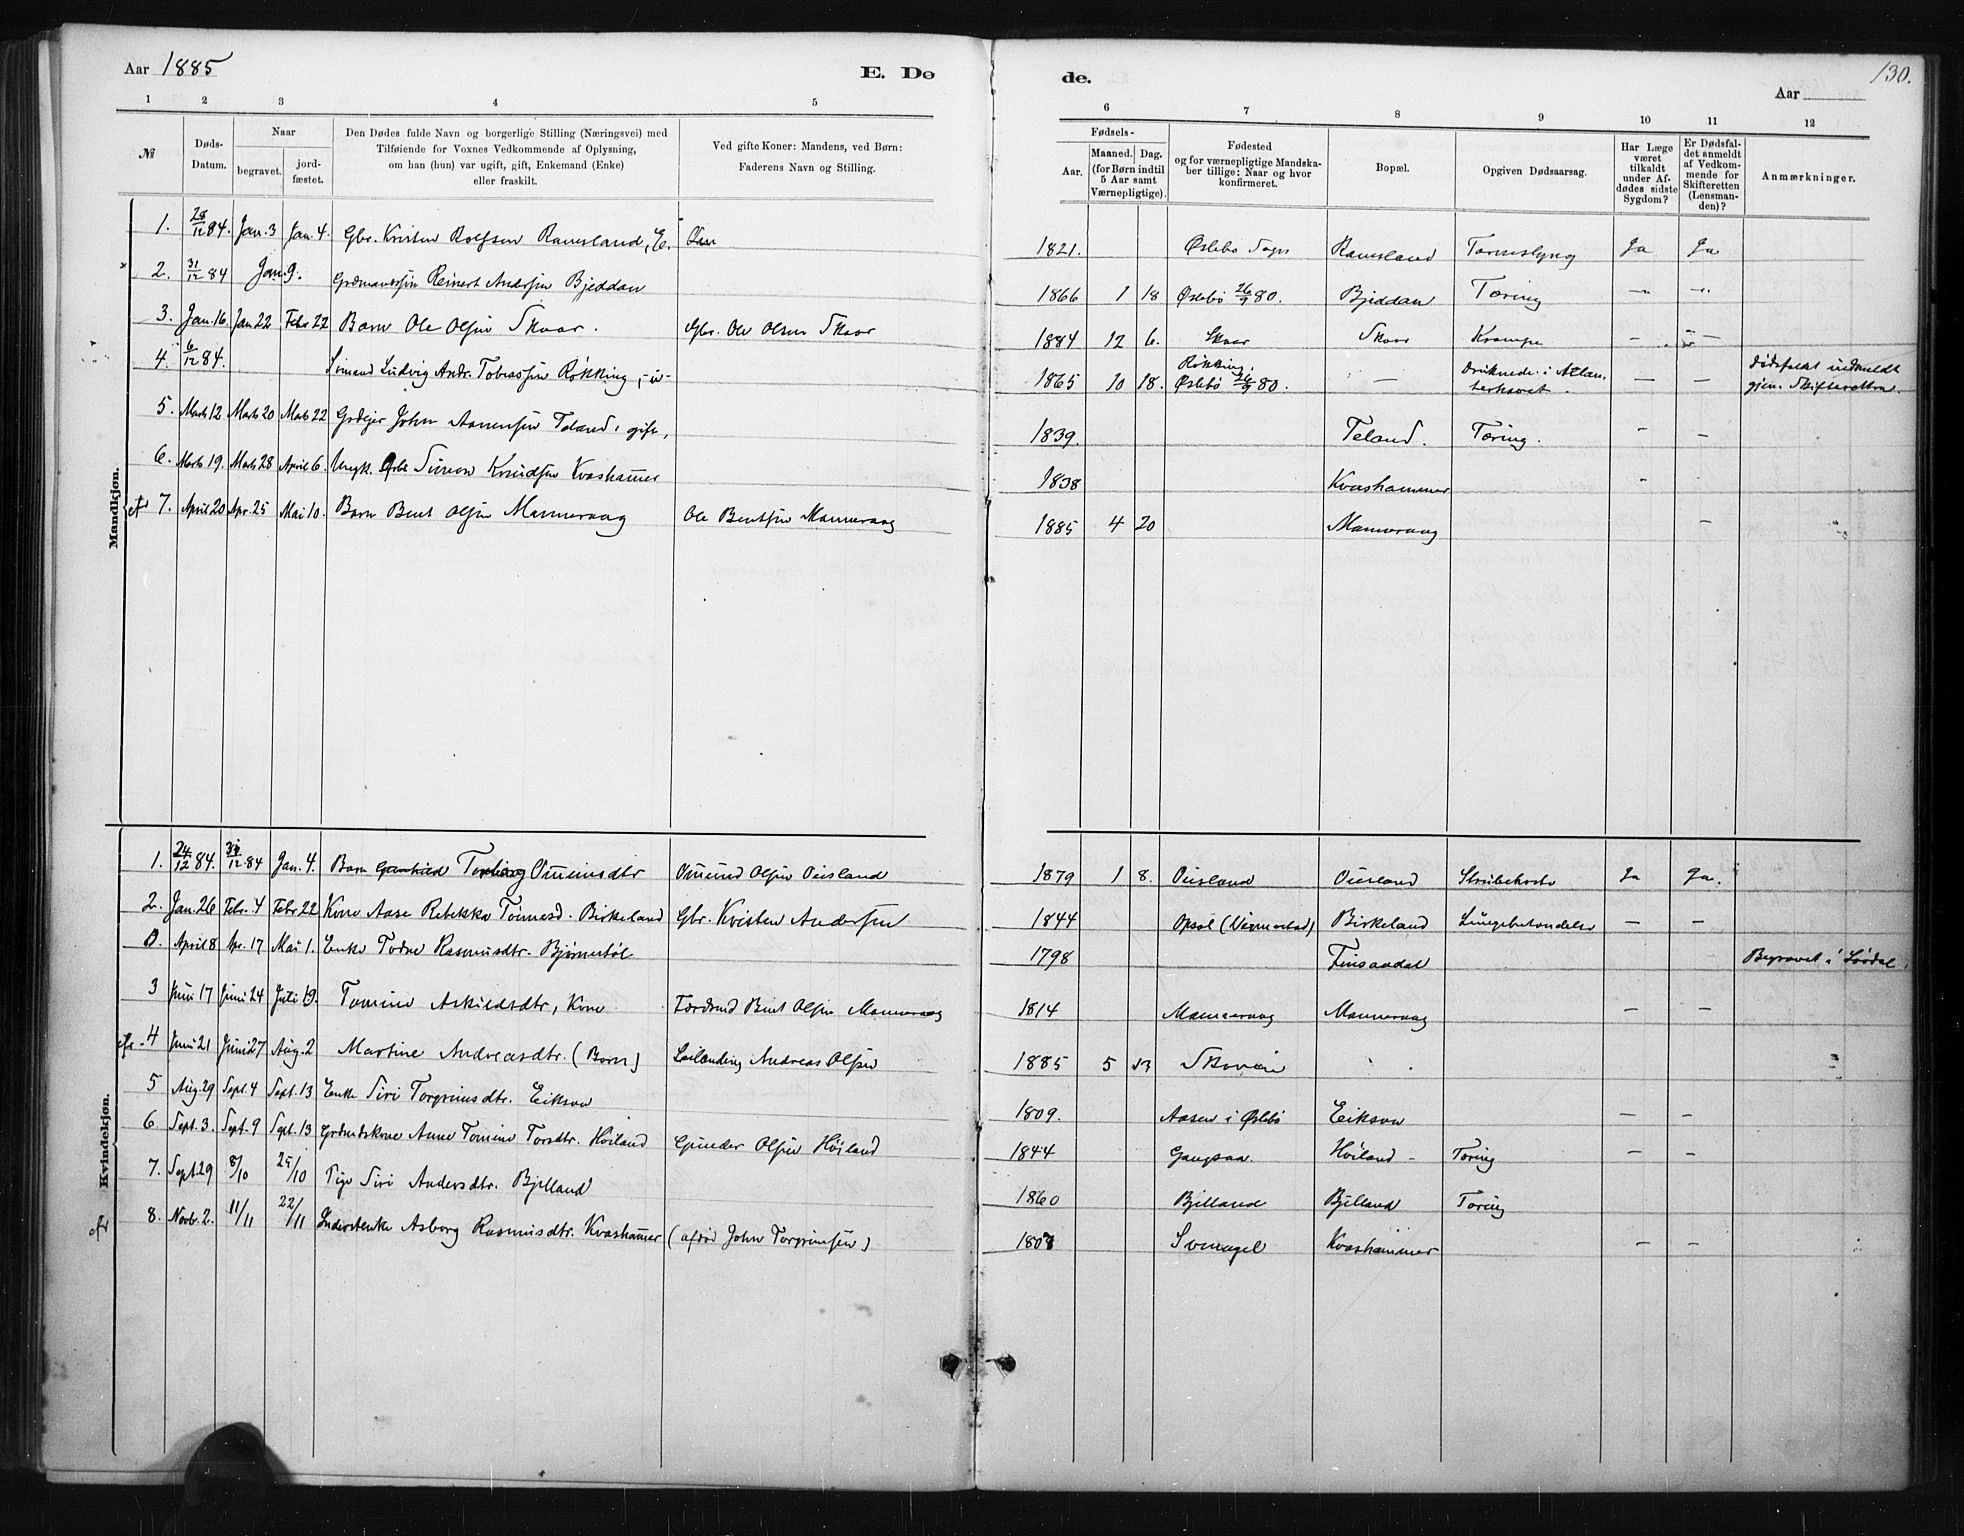 Aar 1885
E. Dø
de.
Aar
130.
1 2 3 4 5
6 7 8 9 10 11 12
№
Døds-
Datum.
Naar
begravet.
jord-
fæstet.
Den Dødes fulde Navn og borgerlige Stilling (Næringsvei) med
Tilføiende for Voxnes Vedkommende af Oplysning,
om han (hun) var ugift, gift, Enkemand (Enke)
eller fraskilt.
Ved gifte Koner: Mandens, ved Børn:
Faderens Navn og Stilling.
Fødsels-
Aar.
Maaned. Dag.
(for Børn indtil
5 Aar samt
Værnepligtige).
Fødested
og for værnepligtige Mandska-
ber tillige: Naar og hvor
konfirmeret.
Bopæl.
Opgiven Dødsaarsag.
Har Læge
været
tilkaldt
under Af-
dødes sidste
Sygdom?
Er Dødsfal-
det anmeldt
af Vedkom-
mende for
Skifteretten
(Lensman-
den)?
Anmærkninger.
Mandkjøn.
1. 28/12 84. Jan. 3 Jan. 4. Gbr. Kristen Rolfsen Ramsland, E. 1821. Øslebø Sogn Ramsland Ja Ja
2. 31/12 84 Jan. 9. Reinert Andrsen Bjeddan 1866 1 18 Øslebø 26/9 80. Bjeddan Tæring — —
3. Jan. 16. Jan 22 Febr 22 Barn Ole Olsen Skaar. Gbr. Ole Olsen Skaar 1884 12 6. Skaar Skaar Krampe — —
4. 6/12 84. Sømand Ludvig Andr. Tobiassen Røkking, 1865 10 18. Røkking. Øslebø 26/9 80. — Druknede i Atlan-
terhavet. — — Dødsfaldet indmeldt
gjen. Skifteretten.
5. Marts 12 Marts 20 Marts 22 Grdejer John Aanensen Teland, gift, 1839. Teland. Tæring. — —
6. Marts 19. Marts 28 April 6. Ungk. Simon Knudsen Kvashamer 1838 Kvashammer —
7. April 20 Apr. 25 Mai 10. Barn Bent Olsen Manneraag Ole Bentsen Manneraag 1885 4 20 Manneraag —
Kvindekjøn.
1. 24/12 84. 31/12 84 Jan. 4. Barn Torborg Omundsdtr Omund Olsen Øiesland 1879 1 8. Øiesland Øiesland Strubehoste Ja Ja.
2. Jan. 26 Febr. 4 Febr 22 Kone Aase Rebekka Tønnesd. Birkeland Gbr. Kristen Andersen 1844 Opsal Birkeland Lungebetændelse — —
0. April 8 Apr. 17 Mai 1. Enke Todne Rasmusdtr. Bjørnebøl 1798 Finsaadal Begravet i
3 Juni 17 Juni 24 Juli 19. Tomine Askildsdtr, Kone Bent Olsen Manneraag 1814 Manneraag Manneraag — —
4 Juni 21 Juni 27 Aug. 2 Martine Andreasdtr. (Barn) Andreas Olsen 1885 5 13
5 Aug. 29 Sept. 4 Sept. 13 Enke Siri Torgrimsdtr. Eiksaa 1809. Aasen i Øslebø Eiksaa — —
6 Sept. 3. Sept. 9 Sept. 13 Grdmdskone Anne Tomine Torsdtr. Høiland Gunder Olsen Høiland 1844 Gangsaa. Høiland — Tæring — —
7. Sept. 29 8/10 25/10 Pige Siri Andersdtr. Bjelland 1860 Bjelland Bjelland Tæring
8. Novb. 2. 11/11 22/11 Inderstenke Asborg Rasmusdtr. Kvashamer (afdød John Torgrimsen) 1808 Svenagel Kvashammer — —